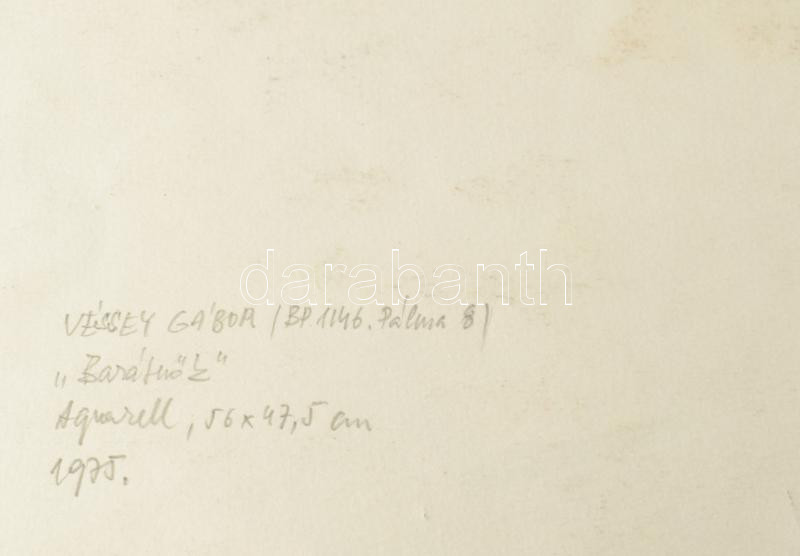 darabanth
VÉSSEY GÁBOR (BP. 1146. Pálma 8)
„Barátnők"
Aquarell, 56 x 47,5 cm
1975.